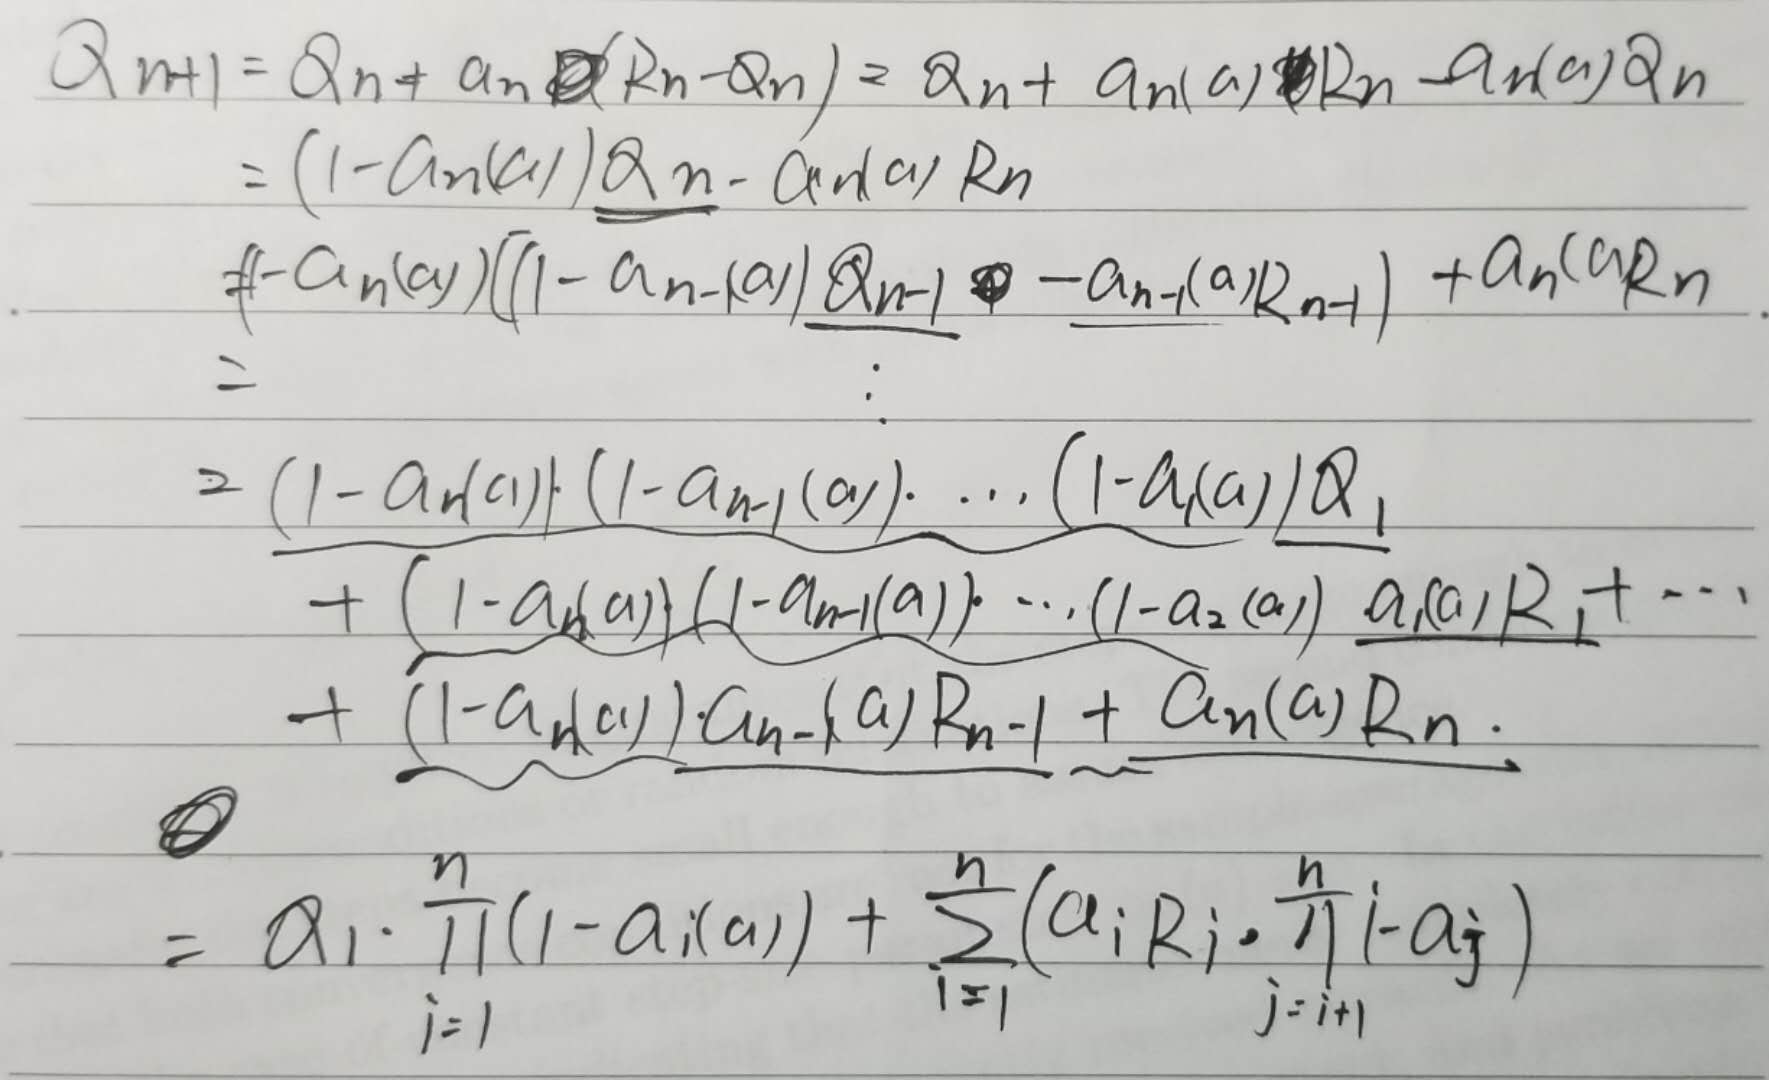 Qn+1 = Qn + an (Rn - Qn) = Qn + an(a) Rn - an(a) Qn
= (1 - an(a)) Qn - an(a) Rn
= (1 - an(a)) [(1 - an-1(a)) Qn-1 - an-1(a) Rn-1) + an(a) Rn
= ⋮
= (1 - an(a)) · (1 - an-1(a)) · ... (1 - a1(a)) Q1
+ (1 - an(a)) (1 - an-1(a)) · ... (1 - a2(a)) a1(a) R1 + ...
+ (1 - an(a)) · an-1(a) Rn-1 + an(a) Rn .
= Q1 · n∏i=1 (1 - ai(a)) + n∑i=1 (ai Ri · n∏j=i+1 1 - aj)